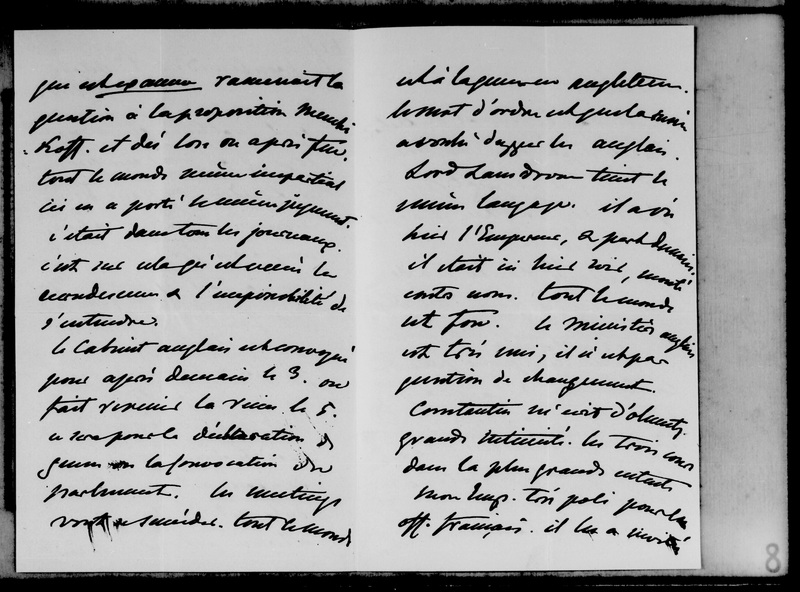 ramenait la
question à la proposition Menchi
-koff. et dès lors on a pris feu.
tout le monde même impartial
ici en a porté le même jugement.
c'était dans tous les journaux.
c'est sur cela
l'impossibilité de
s'entendre.
le Cabinet anglais est convoqué
pour après demain le 3. on
fait revenir la reine le 5.
ce sera pour la déclaration de
guerre ou la convocation du
parlement. les meetings
vont se succéder. tout le monde
est à la guerre en angleterre.
le mot d'ordre est que la russie
a voulu dupper les anglais.
Lord Lansdowne tient le
même langage. il a vu
hier l'Empereur, & part demain.
il était ici hier soir, monté
contre nous. tout le monde
est fou. le Ministère anglais
est très uni, il n'est pas
question de changement.
Constantin m'écrit d'olmutz.
grande intimité. les trois cours
dans la plus grande entente
mon Emp. très poli pour les
off. français. il les a invités
8